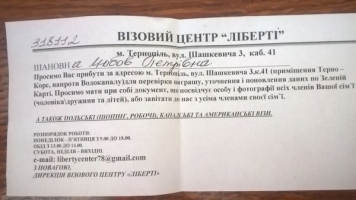 318112
ВІЗОВИЙ ЦЕНТР "ЛІБЕРТІ"
м. Тернопіль, вул. Шашкевича 3, каб. 41
ШАНОВНа Любов Петрівна
Просимо Вас прибути за адресою м. Тернопіль, вул. Шашкевича 3,к.41 (приміщення Терно-
Корс, навпроти Водоканалу)для перевірки виграшу, уточнення і поновлення даних по Зеленій
Карті. Просимо мати при собі документ, що посвідчує особу і фотографії всіх членів Вашої сім'ї
(чоловіка\дружини та дітей), або завітати до нас з усіма членами своєї сім'ї.
А ТАКОЖ ПОЛЬСЬКІ (ШОПІНГ, РОБОЧІ), КАНАДСЬКІ ТА АМЕРИКАНСЬКІ ВІЗИ.
РОЗПОРЯДОК РОБОТИ.
ПОНЕДІЛОК - П'ЯТНИЦЯ З 9.00 ДО 18.00.
ОБІД З 13.00 ДО 14.00.
СУБОТА, НЕДІЛЯ - ВИХІДНІ.
e-mail: libertycenter78@gmail.com
З ПОВАГОЮ,
ДИРЕКЦІЯ ВІЗОВОГО ЦЕНТРУ «ЛІБЕРТІ»